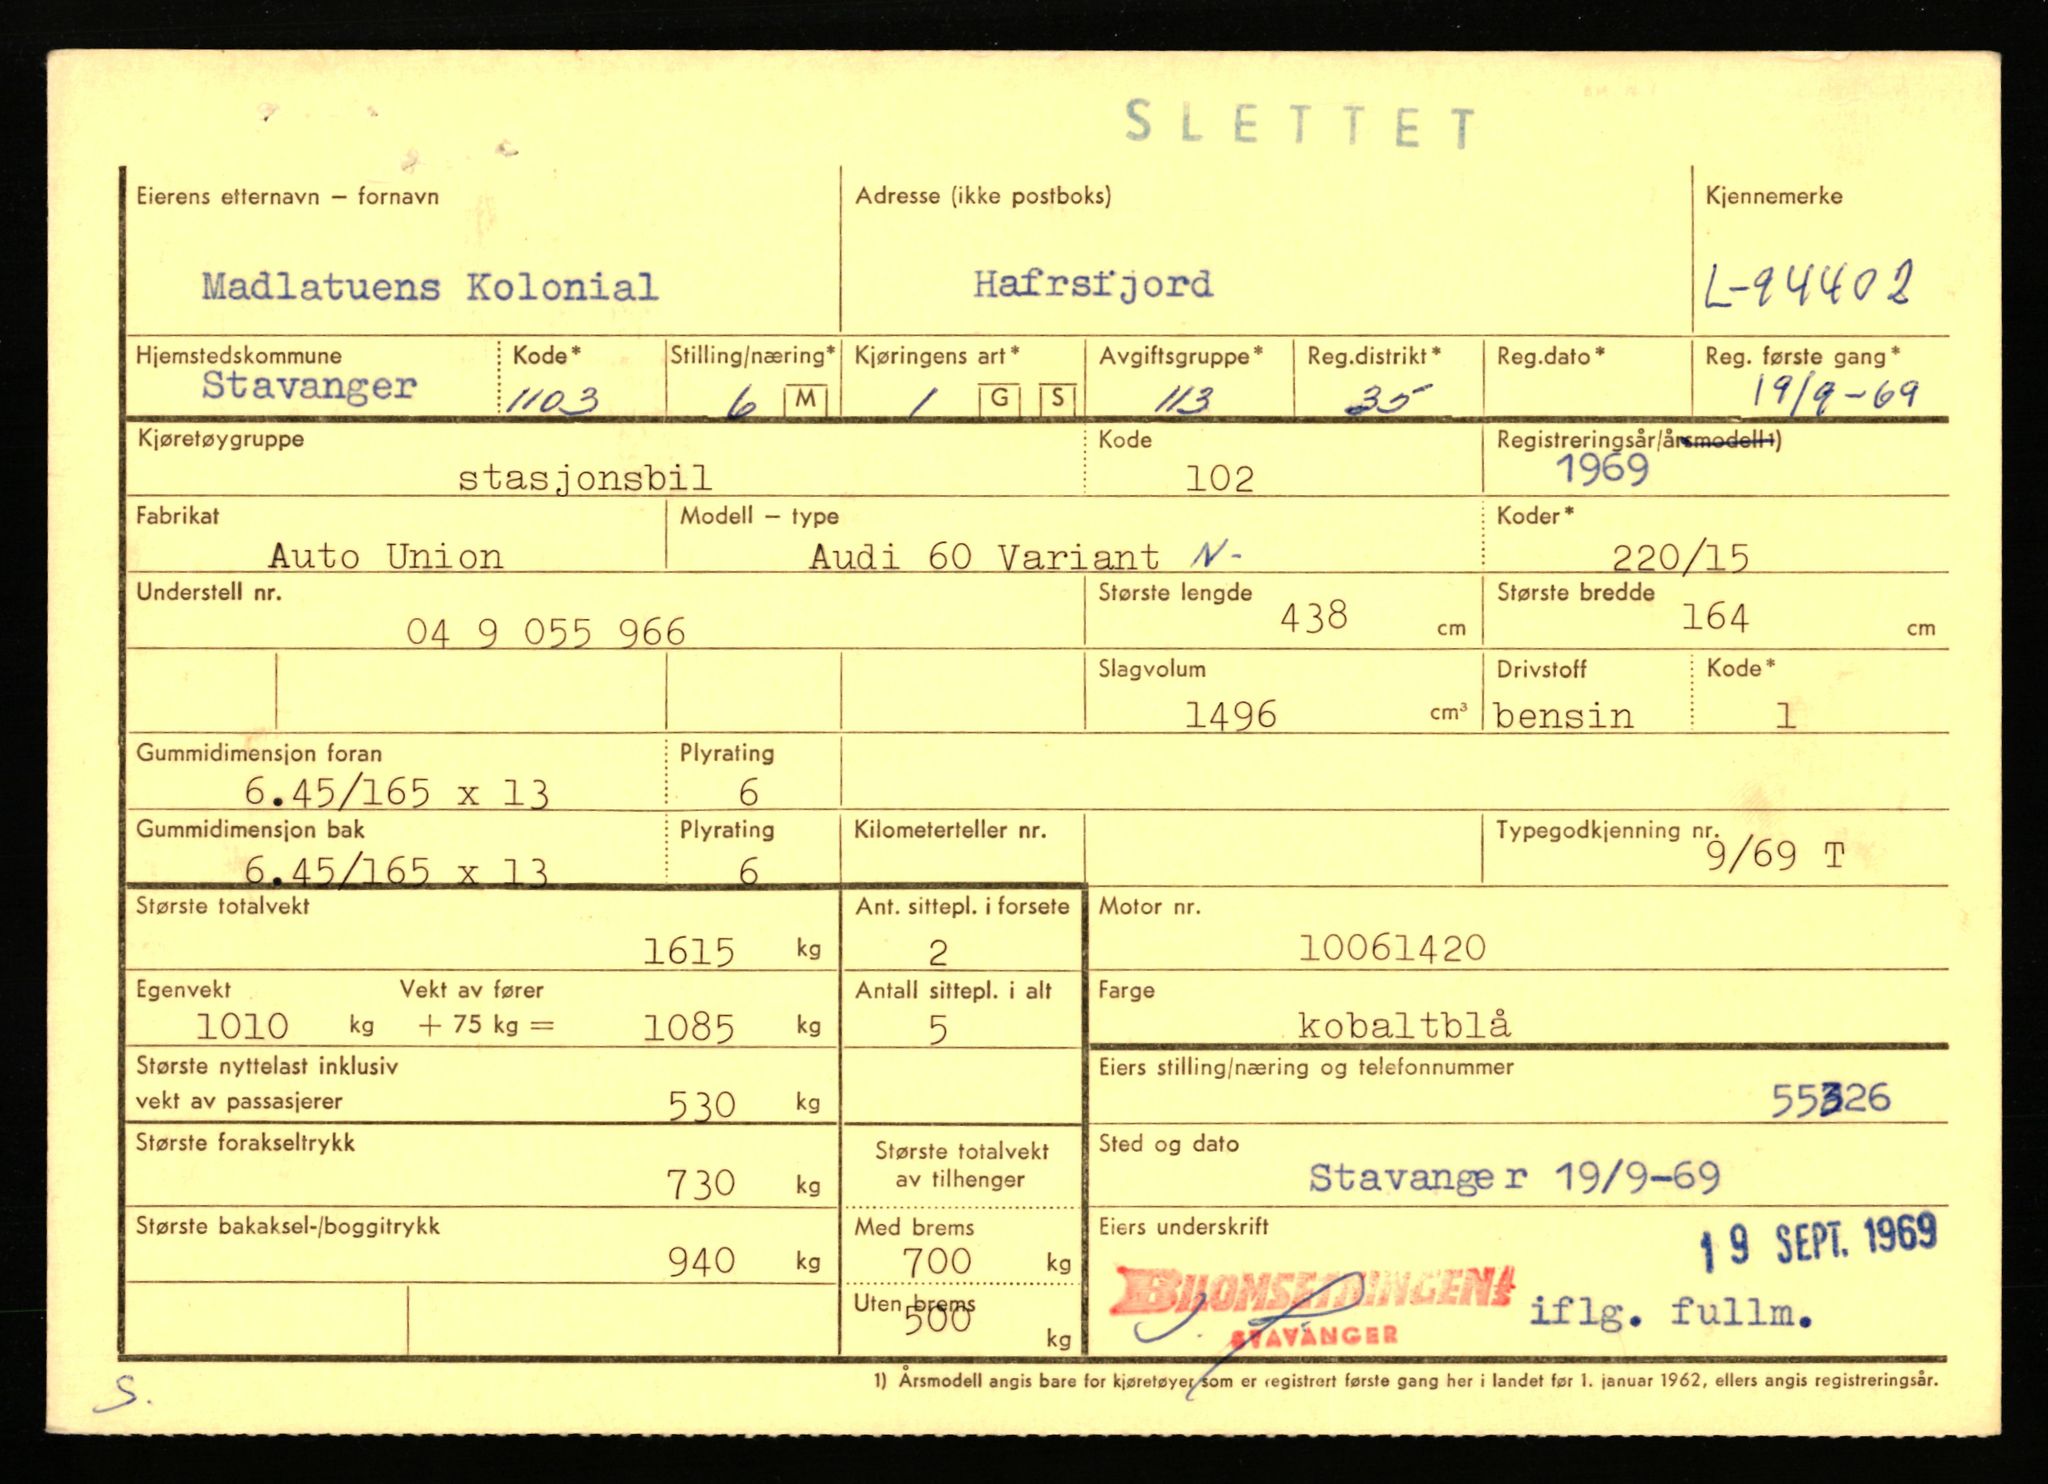 SLETTET
Eierens etternavn – fornavn Adresse (ikke postboks) Kjennemerke
Madlatuens Kolonial Hafrsfjord L-94402
Hjemstedskommune Kode* Stilling/næring* Kjøringens art* Avgiftsgruppe* Reg.distrikt* Reg.dato* Reg. første gang*
Stavanger 1103 6 M 1 G S 113 35 19/9-69
Kjøretøygruppe Kode Registreringsår/årsmodell 1)
stasjonsbil 102 1969
Fabrikat Modell – type Koder*
Auto Union Audi 60 Variant N- 220/15
Understell nr. Største lengde Største bredde
04 9 055 966 438 cm 164 cm
Slagvolum Drivstoff Kode*
1496 cm³ bensin 1
Gummidimensjon foran Plyrating
6.45/165 x 13 6
Gummidimensjon bak Plyrating Kilometerteller nr. Typegodkjenning nr.
6.45/165 x 13 6 9/69 T
Største totalvekt Ant. sittepl. i forsete Motor nr.
1615 kg 2 10061420
Egenvekt Vekt av fører Antall sittepl. i alt Farge
1010 kg + 75 kg = 1085 kg 5 kobaltblå
Største nyttelast inklusiv Eiers stilling/næring og telefonnummer
vekt av passasjerer 530 kg 55326
Største forakseltrykk Største totalvekt Sted og dato
730 kg av tilhenger Stavanger 19/9-69
Største bakaksel-/boggitrykk Med brems Eiers underskrift
940 kg 700 kg 19 SEPT. 1969
Uten brems BILOMSETNINGEN A/S iflg. fullm.
500 kg STAVANGER
1) Årsmodell angis bare for kjøretøyer som er registrert første gang her i landet før 1. januar 1962, ellers angis registreringsår.
S.